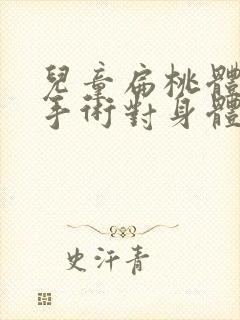 兒童扁桃體
手術對身體
史汗青